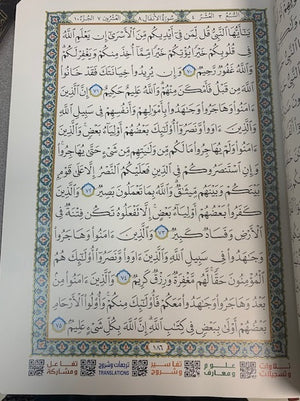 سُورَةُ الأَنفَال ٨
يَٰٓأَيُّهَا ٱلنَّبِيُّ قُل لِّمَن فِيٓ أَيۡدِيكُم مِّنَ ٱلۡأَسۡرَىٰٓ إِن يَعۡلَمِ ٱللَّهُ
فِي قُلُوبِكُمۡ خَيۡرٗا يُؤۡتِكُمۡ خَيۡرٗا مِّمَّآ أُخِذَ مِنكُمۡ وَيَغۡفِرۡ لَكُمۡۚ
وَٱللَّهُ غَفُورٞ رَّحِيمٞ ٧٠ وَإِن يُرِيدُواْ خِيَانَتَكَ فَقَدۡ خَانُواْ
ٱللَّهَ مِن قَبۡلُ فَأَمۡكَنَ مِنۡهُمۡۗ وَٱللَّهُ عَلِيمٌ حَكِيمٌ ٧١ إِنَّ ٱلَّذِينَ
ءَامَنُواْ وَهَاجَرُواْ وَجَٰهَدُواْ بِأَمۡوَٰلِهِمۡ وَأَنفُسِهِمۡ فِي سَبِيلِ ٱللَّهِ
وَٱلَّذِينَ ءَاوَواْ وَّنَصَرُوٓاْ أُوْلَٰٓئِكَ بَعۡضُهُمۡ أَوۡلِيَآءُ بَعۡضٖۚ وَٱلَّذِينَ
ءَامَنُواْ وَلَمۡ يُهَاجِرُواْ مَا لَكُم مِّن وَلَٰيَتِهِم مِّن شَيۡءٍ حَتَّىٰ يُهَاجِرُواْۚ
وَإِنِ ٱسۡتَنصَرُوكُمۡ فِي ٱلدِّينِ فَعَلَيۡكُمُ ٱلنَّصۡرُ إِلَّا عَلَىٰ قَوۡمِۭ
بَيۡنَكُمۡ وَبَيۡنَهُم مِّيثَٰقٞۗ وَٱللَّهُ بِمَا تَعۡمَلُونَ بَصِيرٞ ٧٢ وَٱلَّذِينَ
كَفَرُواْ بَعۡضُهُمۡ أَوۡلِيَآءُ بَعۡضٍۚ إِلَّا تَفۡعَلُوهُ تَكُن فِتۡنَةٞ فِي
ٱلۡأَرۡضِ وَفَسَادٞ كَبِيرٞ ٧٣ وَٱلَّذِينَ ءَامَنُواْ وَهَاجَرُواْ
وَجَٰهَدُواْ فِي سَبِيلِ ٱللَّهِ وَٱلَّذِينَ ءَاوَواْ وَّنَصَرُوٓاْ أُوْلَٰٓئِكَ هُمُ
ٱلۡمُؤۡمِنُونَ حَقّٗاۚ لَّهُم مَّغۡفِرَةٞ وَرِزۡقٞ كَرِيمٞ ٧٤ وَٱلَّذِينَ ءَامَنُواْ مِنۢ
بَعۡدُ وَهَاجَرُواْ وَجَٰهَدُواْ مَعَكُمۡ فَأُوْلَٰٓئِكَ مِنكُمۡۚ وَأُوْلُواْ ٱلۡأَرۡحَامِ
بَعۡضُهُمۡ أَوۡلَىٰ بِبَعۡضٖ فِي كِتَٰبِ ٱللَّهِۚ إِنَّ ٱللَّهَ بِكُلِّ شَيۡءٍ عَلِيمُۢ ٧٥
١٨٦
تلاوات وتسجيلات
علوم ومعارف
تفاسير وشروح
ترجمات وشروح TRANSLATIONS
تفاعل ومشاركة